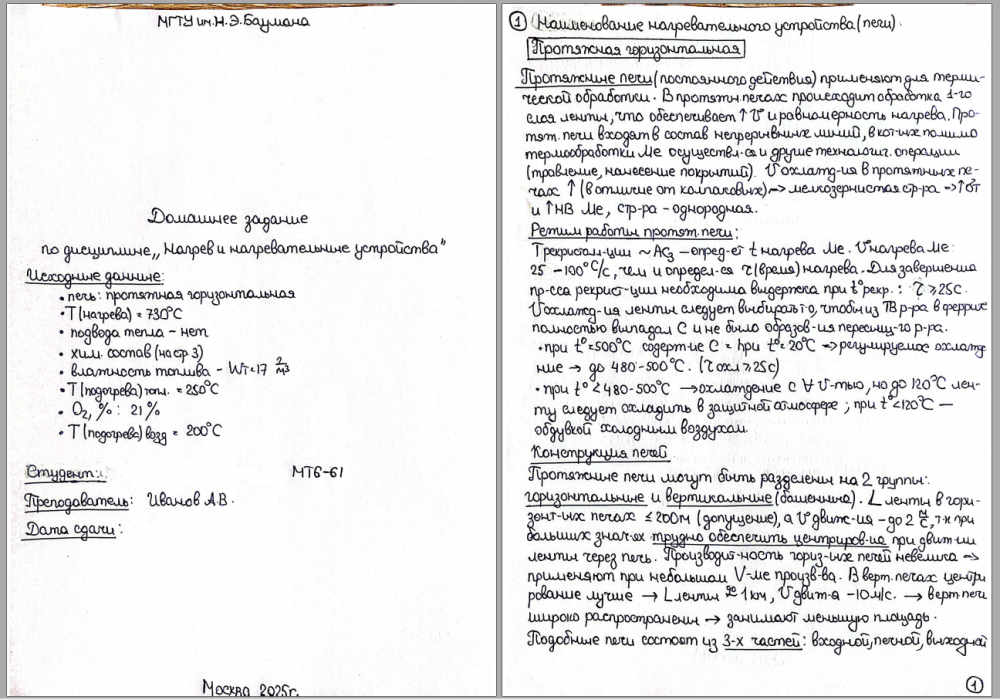 МГТУ им.Н.Э.Баумана
Домашнее задание
по дисциплине „Нагрев и нагревательные устройства"
Исходные данные:
• печь: протяжная горизонтальная
• T(нагрева) = 730°C
• подвода тепла – нет
• хим. состав (на стр 3)
• влажность топлива – Wт=17 г/м³
• T(подогрева)топл. = 250°C
• O₂, % : 21 %
• T(подогрева)возд = 200°C
Студент: МТ6-61
Преподаватель: Иванов А.В.
Дата сдачи:
Москва 2025г.
① Наименование нагревательного устройства(печи).
Протяжная горизонтальная
Протяжные печи (постоянного действия) применяют для терми-
ческой обработки. В протяжн печах происходит обработка 1-го
слоя ленты, что обеспечивает ↑ V и равномерность нагрева. Про-
тяж. печи входят в состав непрерывных линий, в кот-ых помимо
термообработки Ме осуществл-ся и другие технологич. операции
(травление, нанесение покрытий). V охлажд-ия в протяжных пе-
чах ↑ (в отличие от колпаковых) → мелкозернистая стр-ра → ↑σт
и ↑HB Ме, стр-ра - однородная.
Режим работы протяж.печи:
Tрекристал-ции ~ Ac₃ – опред-ет t нагрева Ме. V нагрева Ме:
25 – 100°C/c, чем и определ-ся τ (время) нагрева. Для завершения
пр-сса рекрист-ции необходима выдержка при t°рекр. : τ ≥ 25c.
V охлажд-ия ленты следует выбирать ~, чтобы из ТВ р-ра в феррите
полностью выпадал C и не было образов-ия пересыщ-го р-ра.
• при t°=500°C содерж-ие C = при t°= 20°C → регулируемое охлажде
ние → до 480-500°C. (τ охл ≥ 25c)
• при t° < 480-500°C → охлаждение с ∀ V-тью, но до 120°C лен-
ту следует охладить в защитной атмосфере ; при t° < 120°C —
обдувкой холодным воздухом.
Конструкция печей.
Протяжные печи могут быть разделены на 2 группы:
горизонтальные и вертикальные (башенные). L ленты в гори-
зонт-ых печах ≤ 200м (допущение), а V движ-ия – до 2 м/с, т-к при
больших знач-ях трудно обеспечить центриров-ие при движ-ии
ленты через печь. Производит-ность гориз-ых печей невелика →
применяют при небольшом V-ме произв-ва. В верт. печах центри
рование лучше → L ленты ≈ 1км, V движ-я -10м/с. → верт печи
широко распространены → занимают меньшую площадь.
Подобные печи состоят из 3-х частей: входной, печной, выходной
①